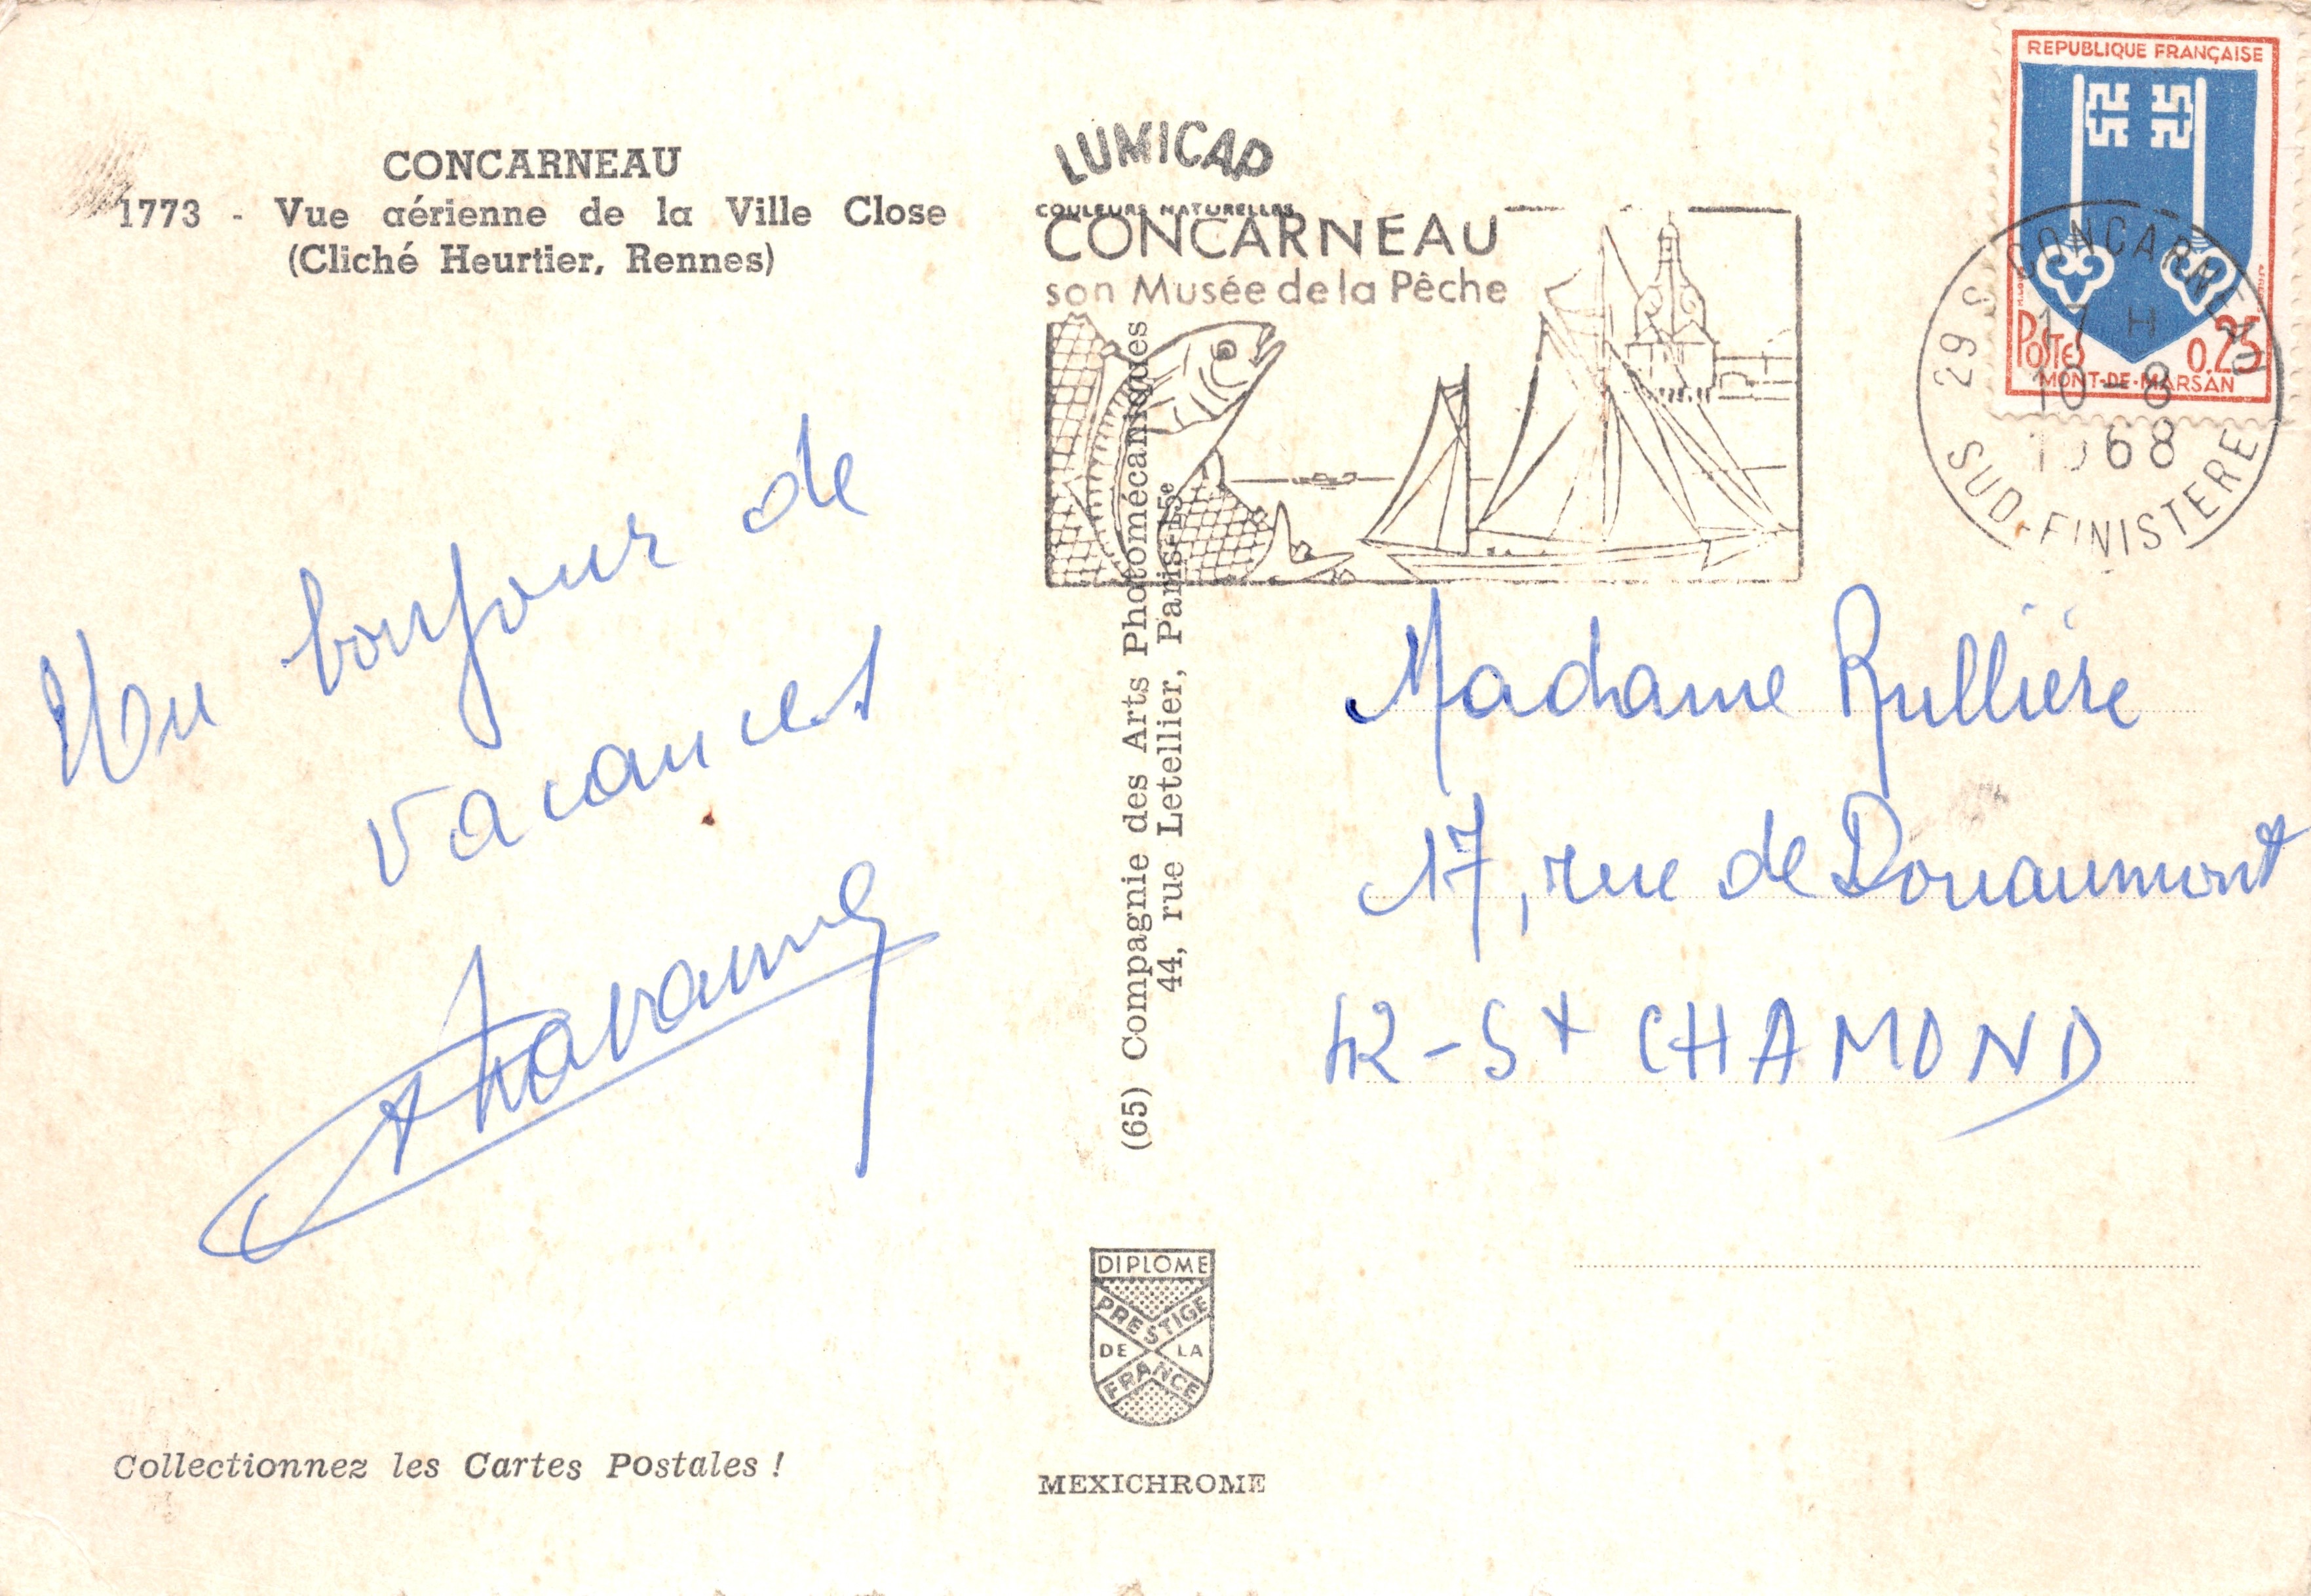 CONCARNEAU
1773 - Vue aérienne de la Ville Close
(Cliché Heurtier, Rennes)
Un bonjour de
vacances
Collectionnez les Cartes Postales !
LUMICAP
COULEURS NATURELLES
CONCARNEAU
son Musée de la Pêche
(65) Compagnie des Arts Photomécaniques
44, rue Letellier, Paris-15e
DIPLOME
PRESTIGE
DE LA
FRANCE
MEXICHROME
REPUBLIQUE FRANÇAISE
POSTES 0.25
MONT-DE-MARSAN
29 S CONCARNEAU
17 H
10-8
1968
SUD-FINISTERE
Madame Rullière
17, rue de Douaumont
42 - St CHAMOND